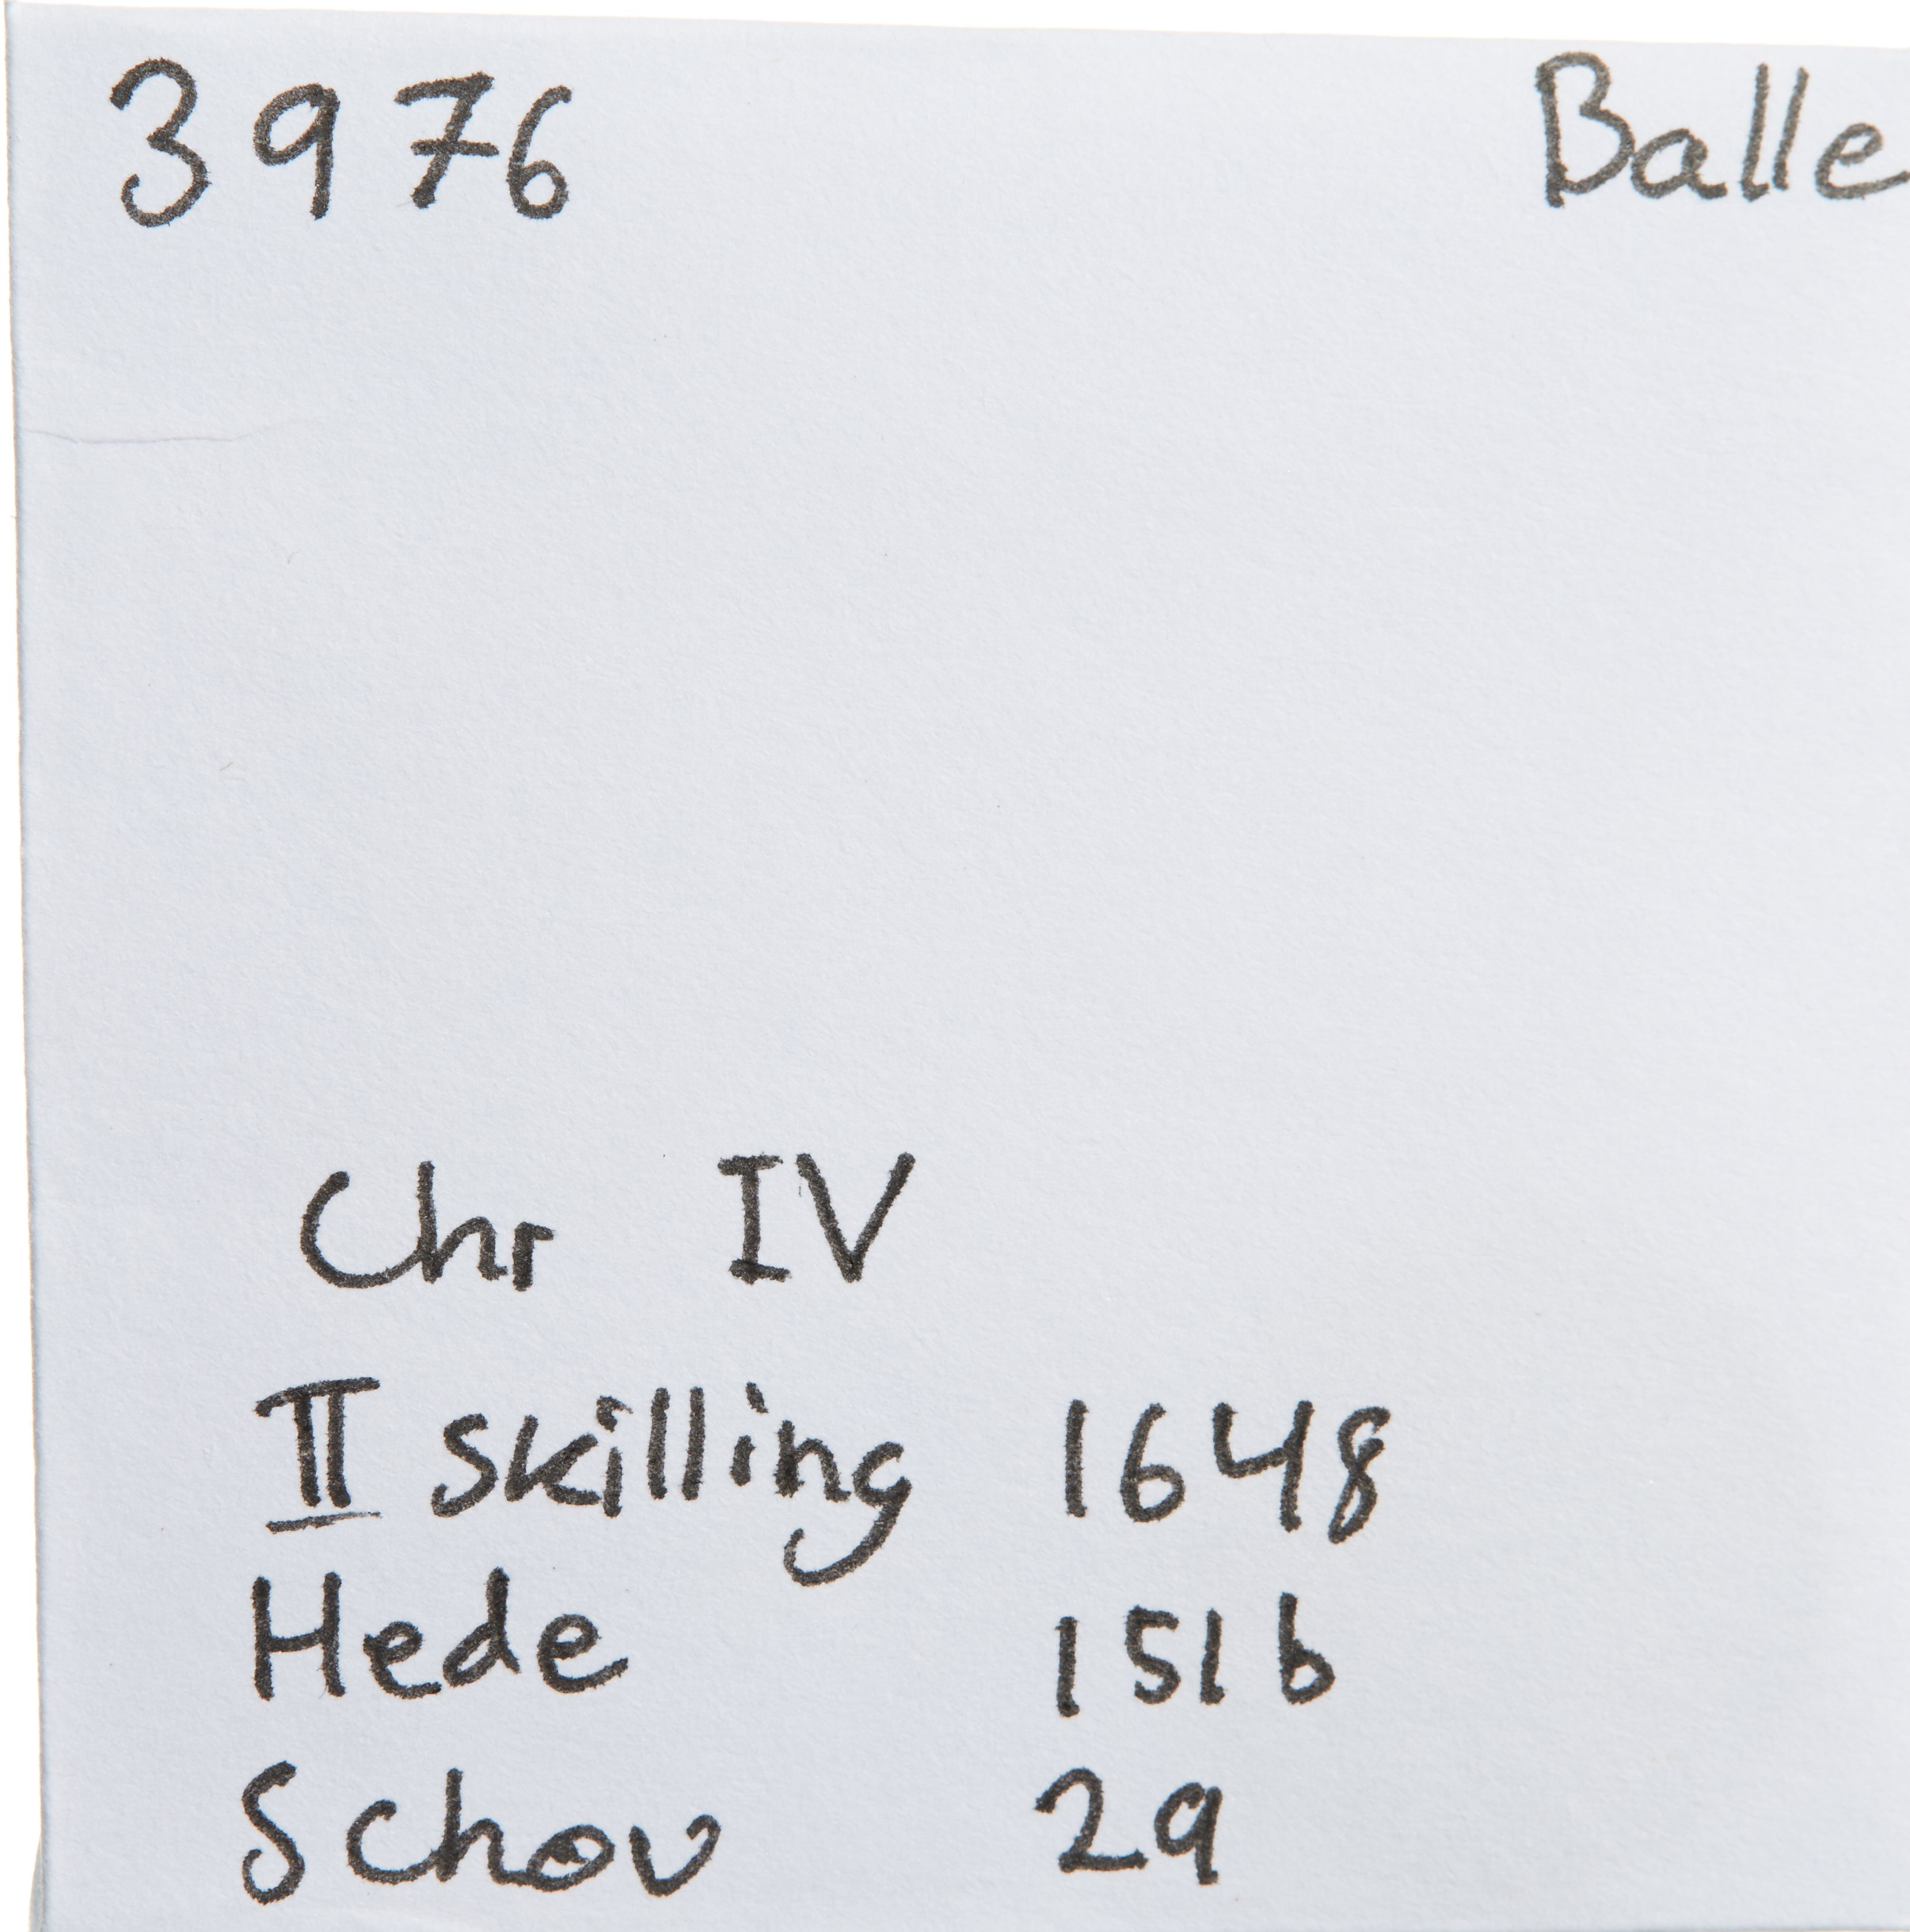 3976 Balle
Chr IV
II skilling 1648
Hede 151b
Schou 29